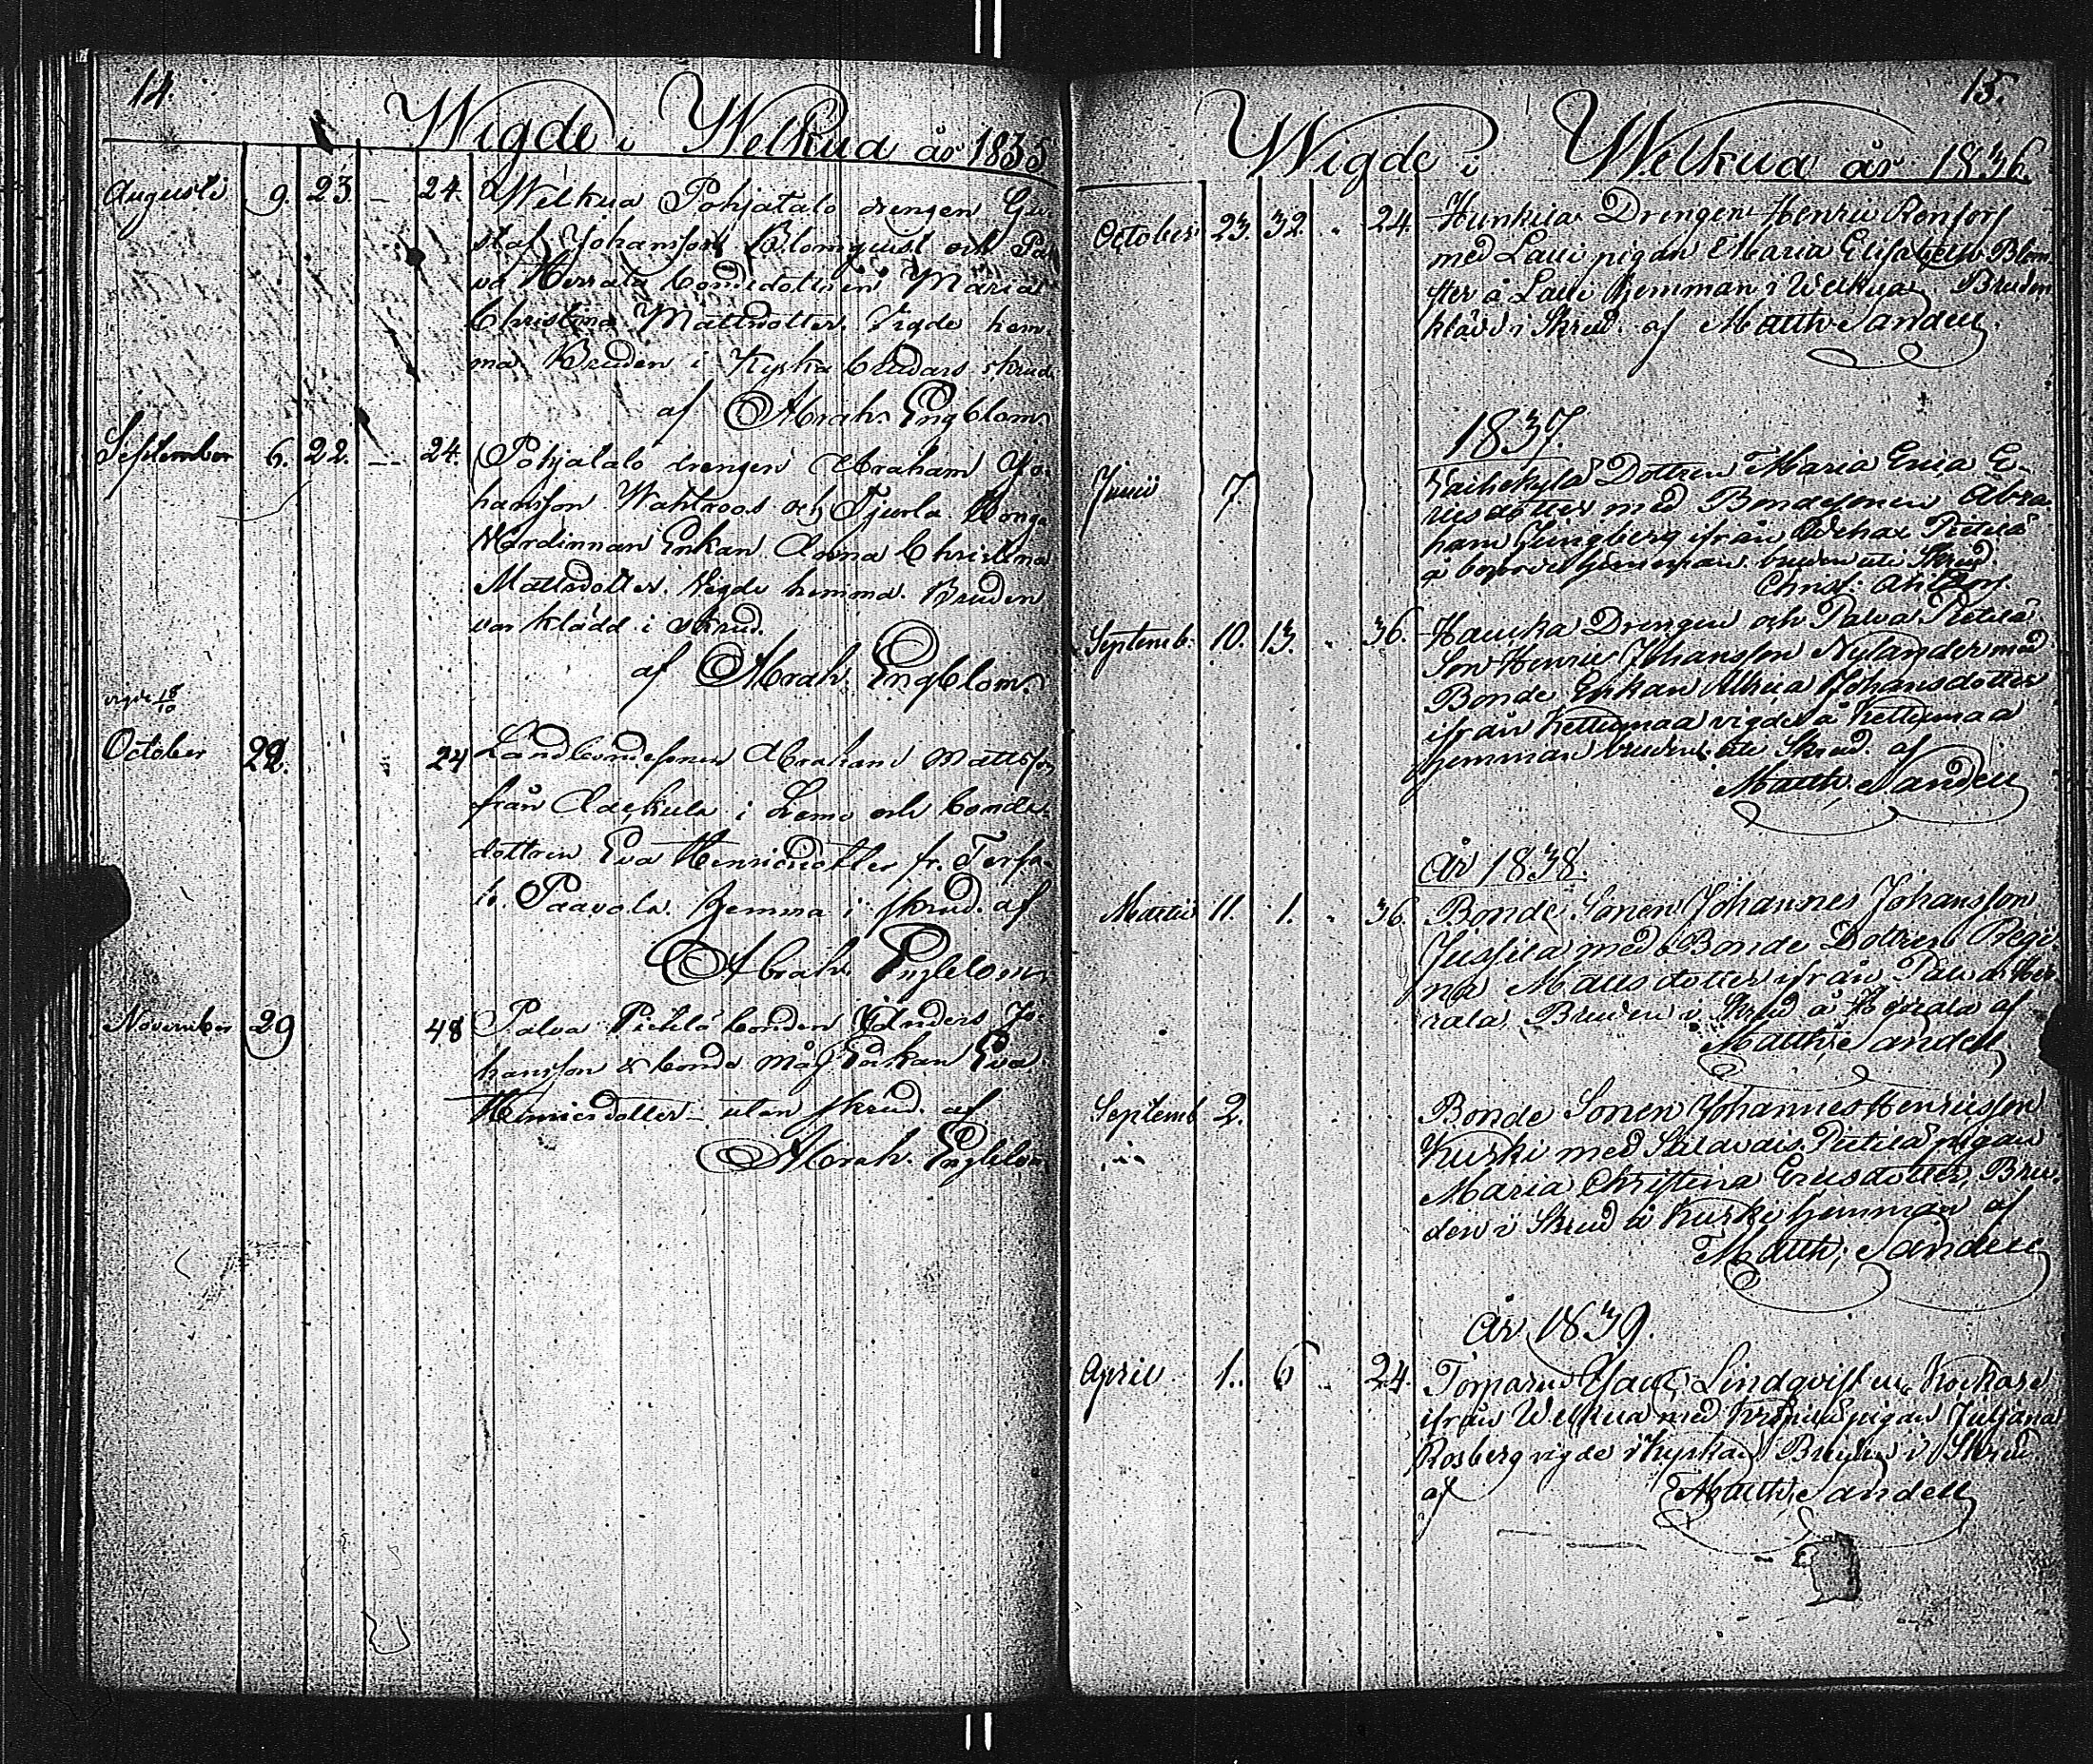 14.
Wigde i Welkua år 1835
Augusti 9. 23. — 24. Welkua Pohjatalo drengen Gu-
staf Johansson Blomqvist och Pal-
va Herrala bondedottren Maria
Christina Mattsdotter. Vigde hem-
ma. Bruden i Kyska brudars skrud.
af Abrah. Engblom.
September 6. 22. — 24. Pohjatalo drengen Abraham Jo-
hansson Wahlroos och Tjurla
Enkan Anna Christina
Mattsdotter. Vigde hemma. Bruden
var klädd i skrud.
af Abrah. Engblom.
vigde 18/10
October 22. 24 Landbondesonen Abraham Mattsson
från i Lemo och bonde-
dottren Eva Henricsdotter fr.
Paavola. hemma i skrud. af
Abrah. Engblom.
November 29 48 Palva Pietilä bonden Anders Jo-
hansson & bonde måg Enkan Eva
Henricsdotter utan skrud. af
Abrah. Engblom
15.
Wigde i Welkua år 1836.
October 23. 32. „ 24. Drengen Henric Renfors
med Lauri pigan Maria Elisabeth Blom-
ster å Lauri hemman i Welkua. Bruden
klädd i Skrud. af Matth. Sandell.
1837.
Junii 7 Dottren Maria Erica E-
ricsdotter med Bondesonen Abra-
ham Ljungberg ifrån Pietilä
å hemman. bruden uti Skrud.
Christ.
Septemb. 10. 13. „ 36. Haucka Drengen och Palva Pietilä
Son Henric Johansson Nylander med
Bonde Enkan Johansdotter
ifrån Kettumaa vigde å Kettumaa
hemman bruden uti Skrud. af
Matth. Sandell
År 1838.
Martii 11. 1. „ 36. Bonde Sonen Johannes Johansson
Jussila med Bonde Dottren Regi-
na Matsdotter ifrån Palva Her-
rala. Bruden i Skrud å Herrala af
Matth: Sandell
Septemb 2. Bonde Sonen Johannes Henricsson
Kurki med Pietilä pigan
Maria Christina Ericsdotter, Bru-
den i Skrud å Kurki hemman af
Matth; Sandell
År 1839.
April 1. 6 „ 24. Torparen Isaac Lindqvist
ifrån Welkua med pigan Juliana
Rosberg vigde i Kyrkan Bruden i Skrud.
af Matth; Sandell